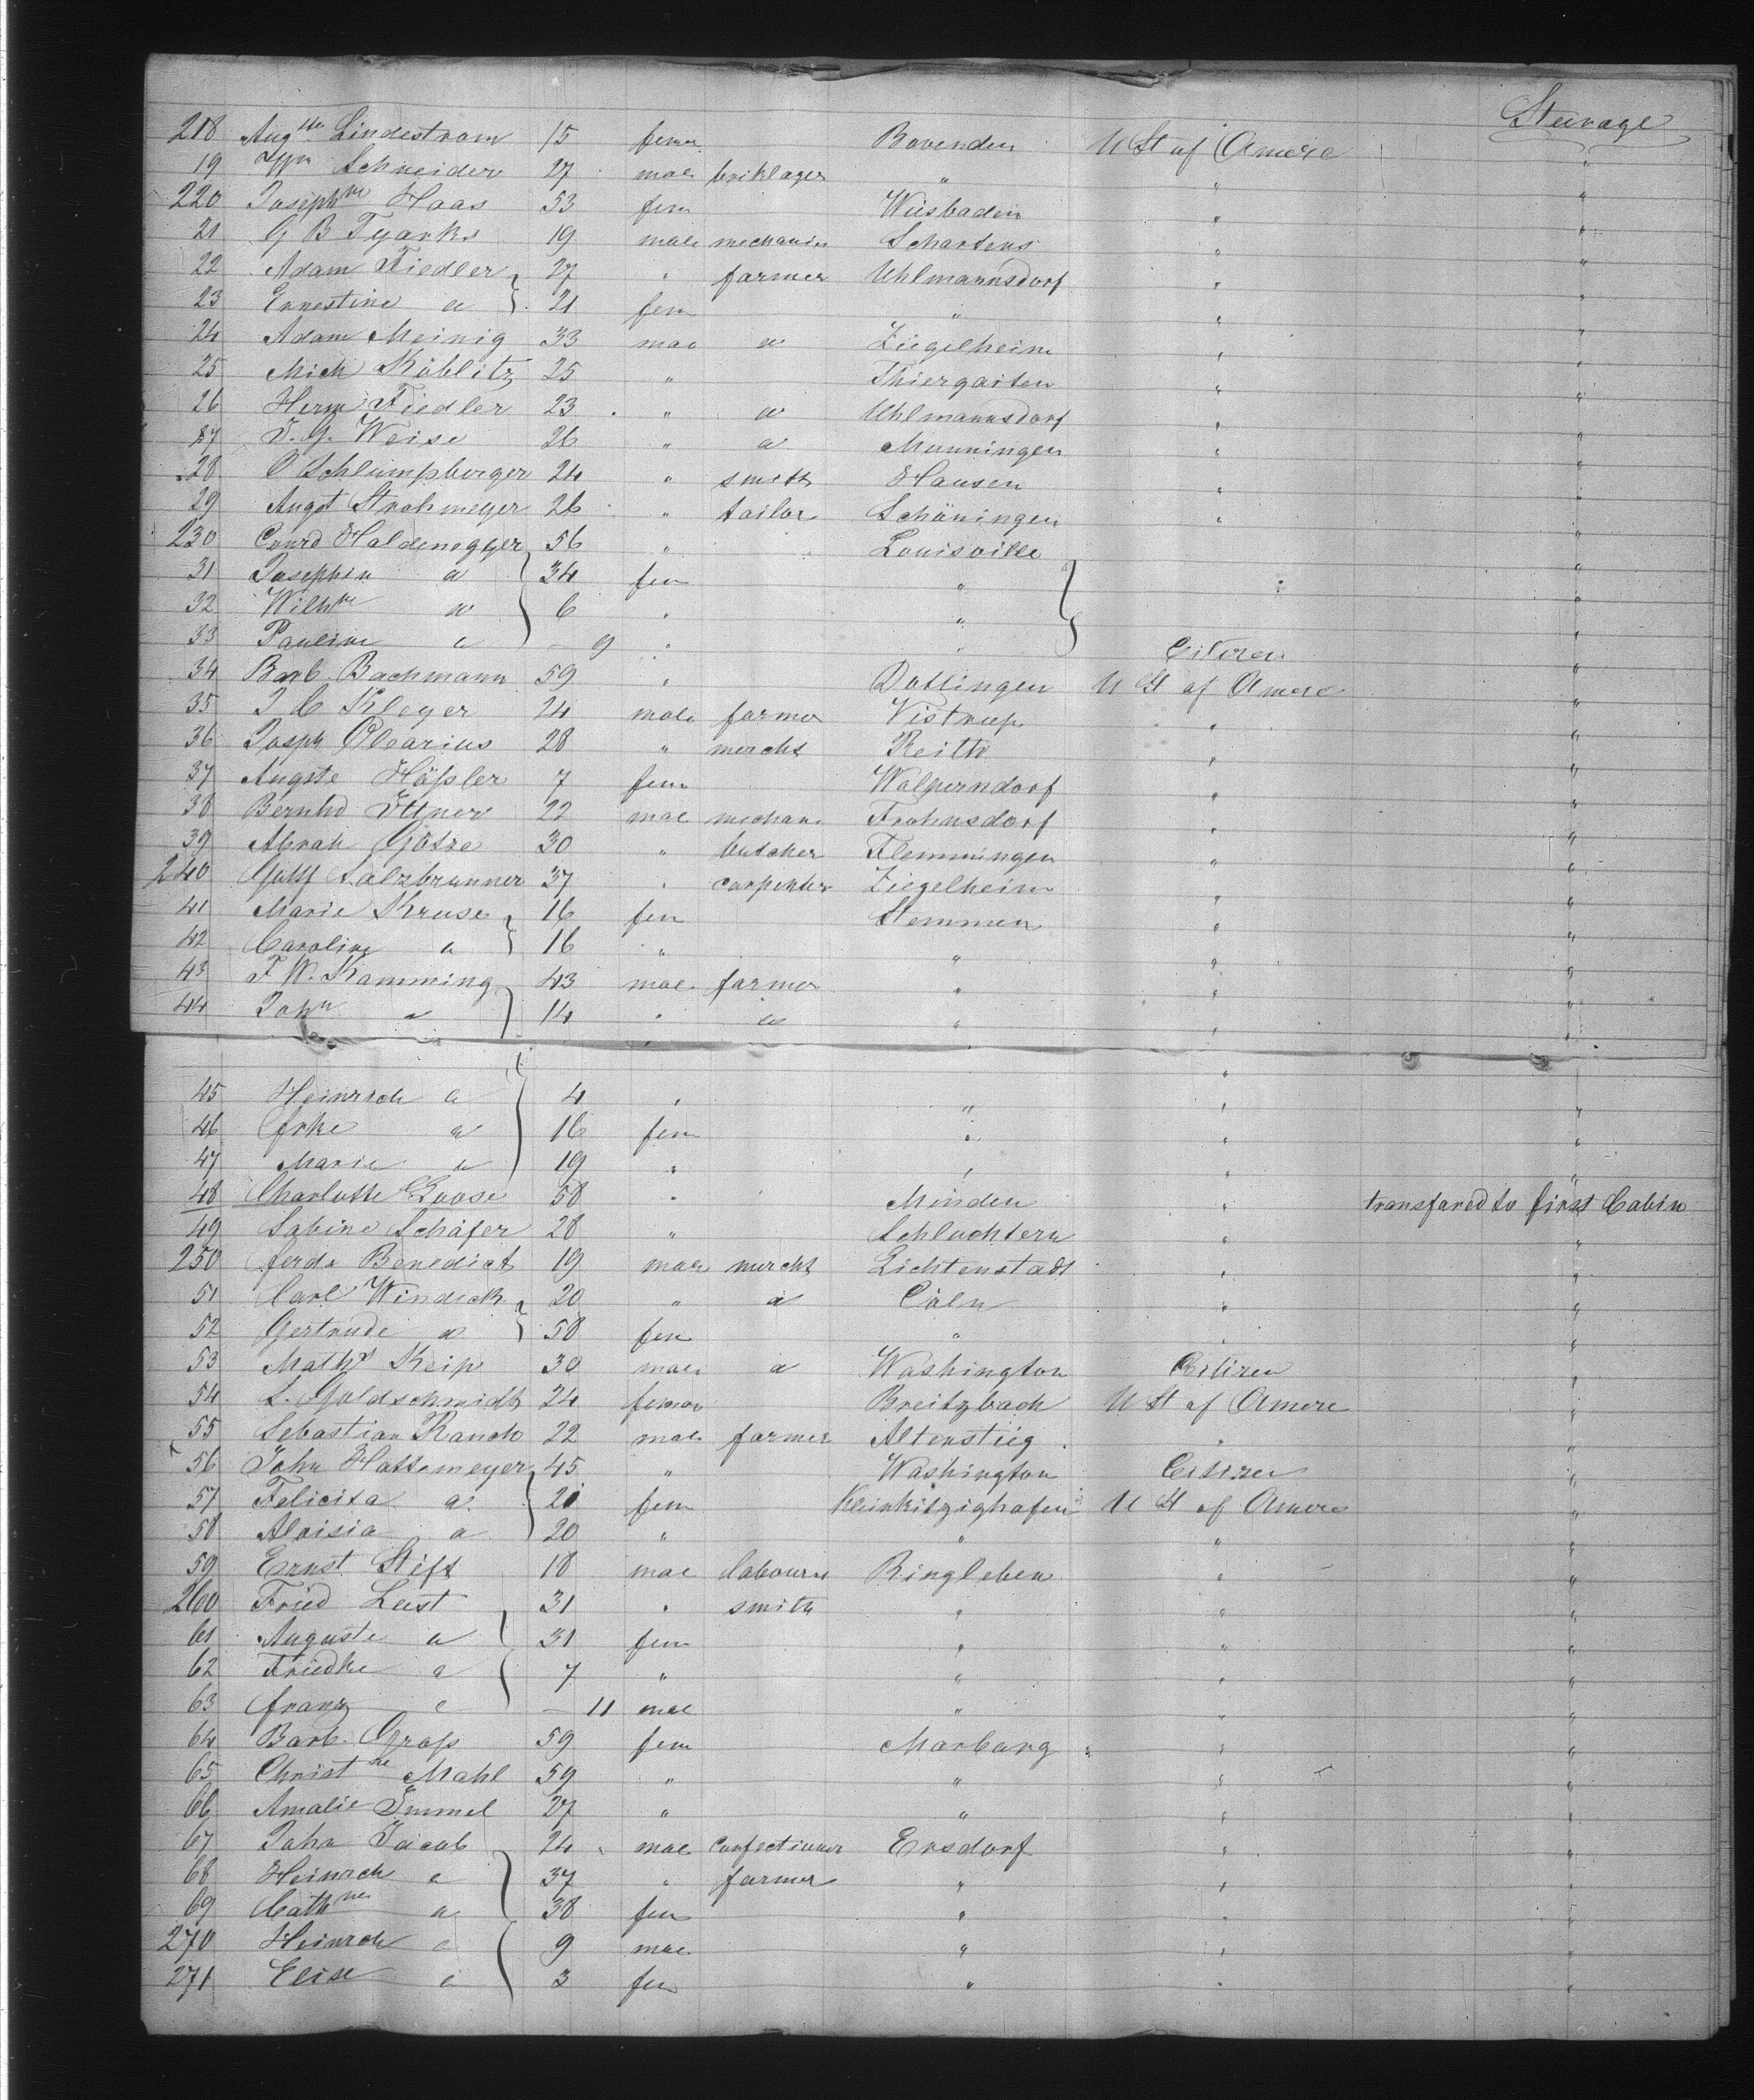 Steerage
218 Aug^ste Lindestrom 15 fem Bovenden U St of Amere "
19 Wm Schneider 27 male briklayer " " "
220 Joseph^ne Haas 53 fem Wiesbaden " "
21 G B Tyarks 19 male mechanic Schartens " "
22 Adam Fiedler 27 " farmer Uhlmannsdorf " "
23 Ernestine a 21 fem " " "
24 Adam Meinig 33 mae a Ziegelheim " "
25 Mich Köblitz 25 " Thiergarten " "
26 Herm Fiedler 23 " a Uhlmannsdorf " "
27 F. G. Weise 26 " a Munningen " "
28 C Schlumpberger 24 " smith Hausen " "
29 Augst Strohmeyer 26 " tailor Schöningen " "
230 Conrd Haldenegger 56 " Louisville "
31 Josephin a 34 fem " "
32 Wilh^ne a 6 " " "
33 Pauline a – 9 " " Citizen "
34 Barb. Bachmann 59 " Dottingen U St of Amere "
35 J C Kleyer 24 male farmer Vistrup " "
36 Josph Olearius 28 " mercht Reith " "
37 Auguste Häßler 7 fem Wolperndorf " "
38 Bernhd Ittner 22 mae mechan Frohnsdorf " "
39 Abrah Götze 30 " butcher Flemmingen " "
240 Gottf Salzbrunner 37 " carpenter Ziegelheim " "
41 Marie Kruse 16 fem Stemmen " "
42 Caroline a 16 " " " "
43 F W. Kamming 43 mae farmer " " "
44 John a 14 " a " " "
45 Heinrich a 4 " " " "
46 Frke a 16 fem " " "
47 Marie a 19 " " " "
48 Charlotte Loose 58 " Minden " transfared to first Cabin
49 Sabine Schäfer 28 " Schluchtern " "
250 Ferd. Benedict 19 mae mercht Lichtenstadt " "
51 Carl Windeck 20 " a Cöln " "
52 Gertrude a 58 fem " " "
53 Maths Keip 30 male a Washington Citizen "
54 L. Goldschmidt 24 femae Breitzbach U St of Amere "
55 Sebastian Rauch 22 male farmer Altenstieg " "
56 John Hottemeyer 45 " Washington Citizen "
57 Felicita a 21 fem Kleinkitzighofen U St of Amere "
58 Aloisia a 20 " " " "
59 Ernst Stift 18 mae labourer Ringleben " "
260 Fried Leist 31 " smith " " "
61 Auguste a 31 fem " " "
62 Friedke a 7 " " " "
63 Franz a – 11 mae " " "
64 Barb. Groß 59 fem Marburg " "
65 Christ^ne Mahl 59 " " " "
66 Amalie Immel 27 " " " "
67 John Jacob 24 mae confectioner Ersdorf " "
68 Heinrch a 37 " farmer " " "
69 Cath^ne a 38 fem " " "
270 Heinrch a 9 mae " " "
271 Elise a 3 fem " " "